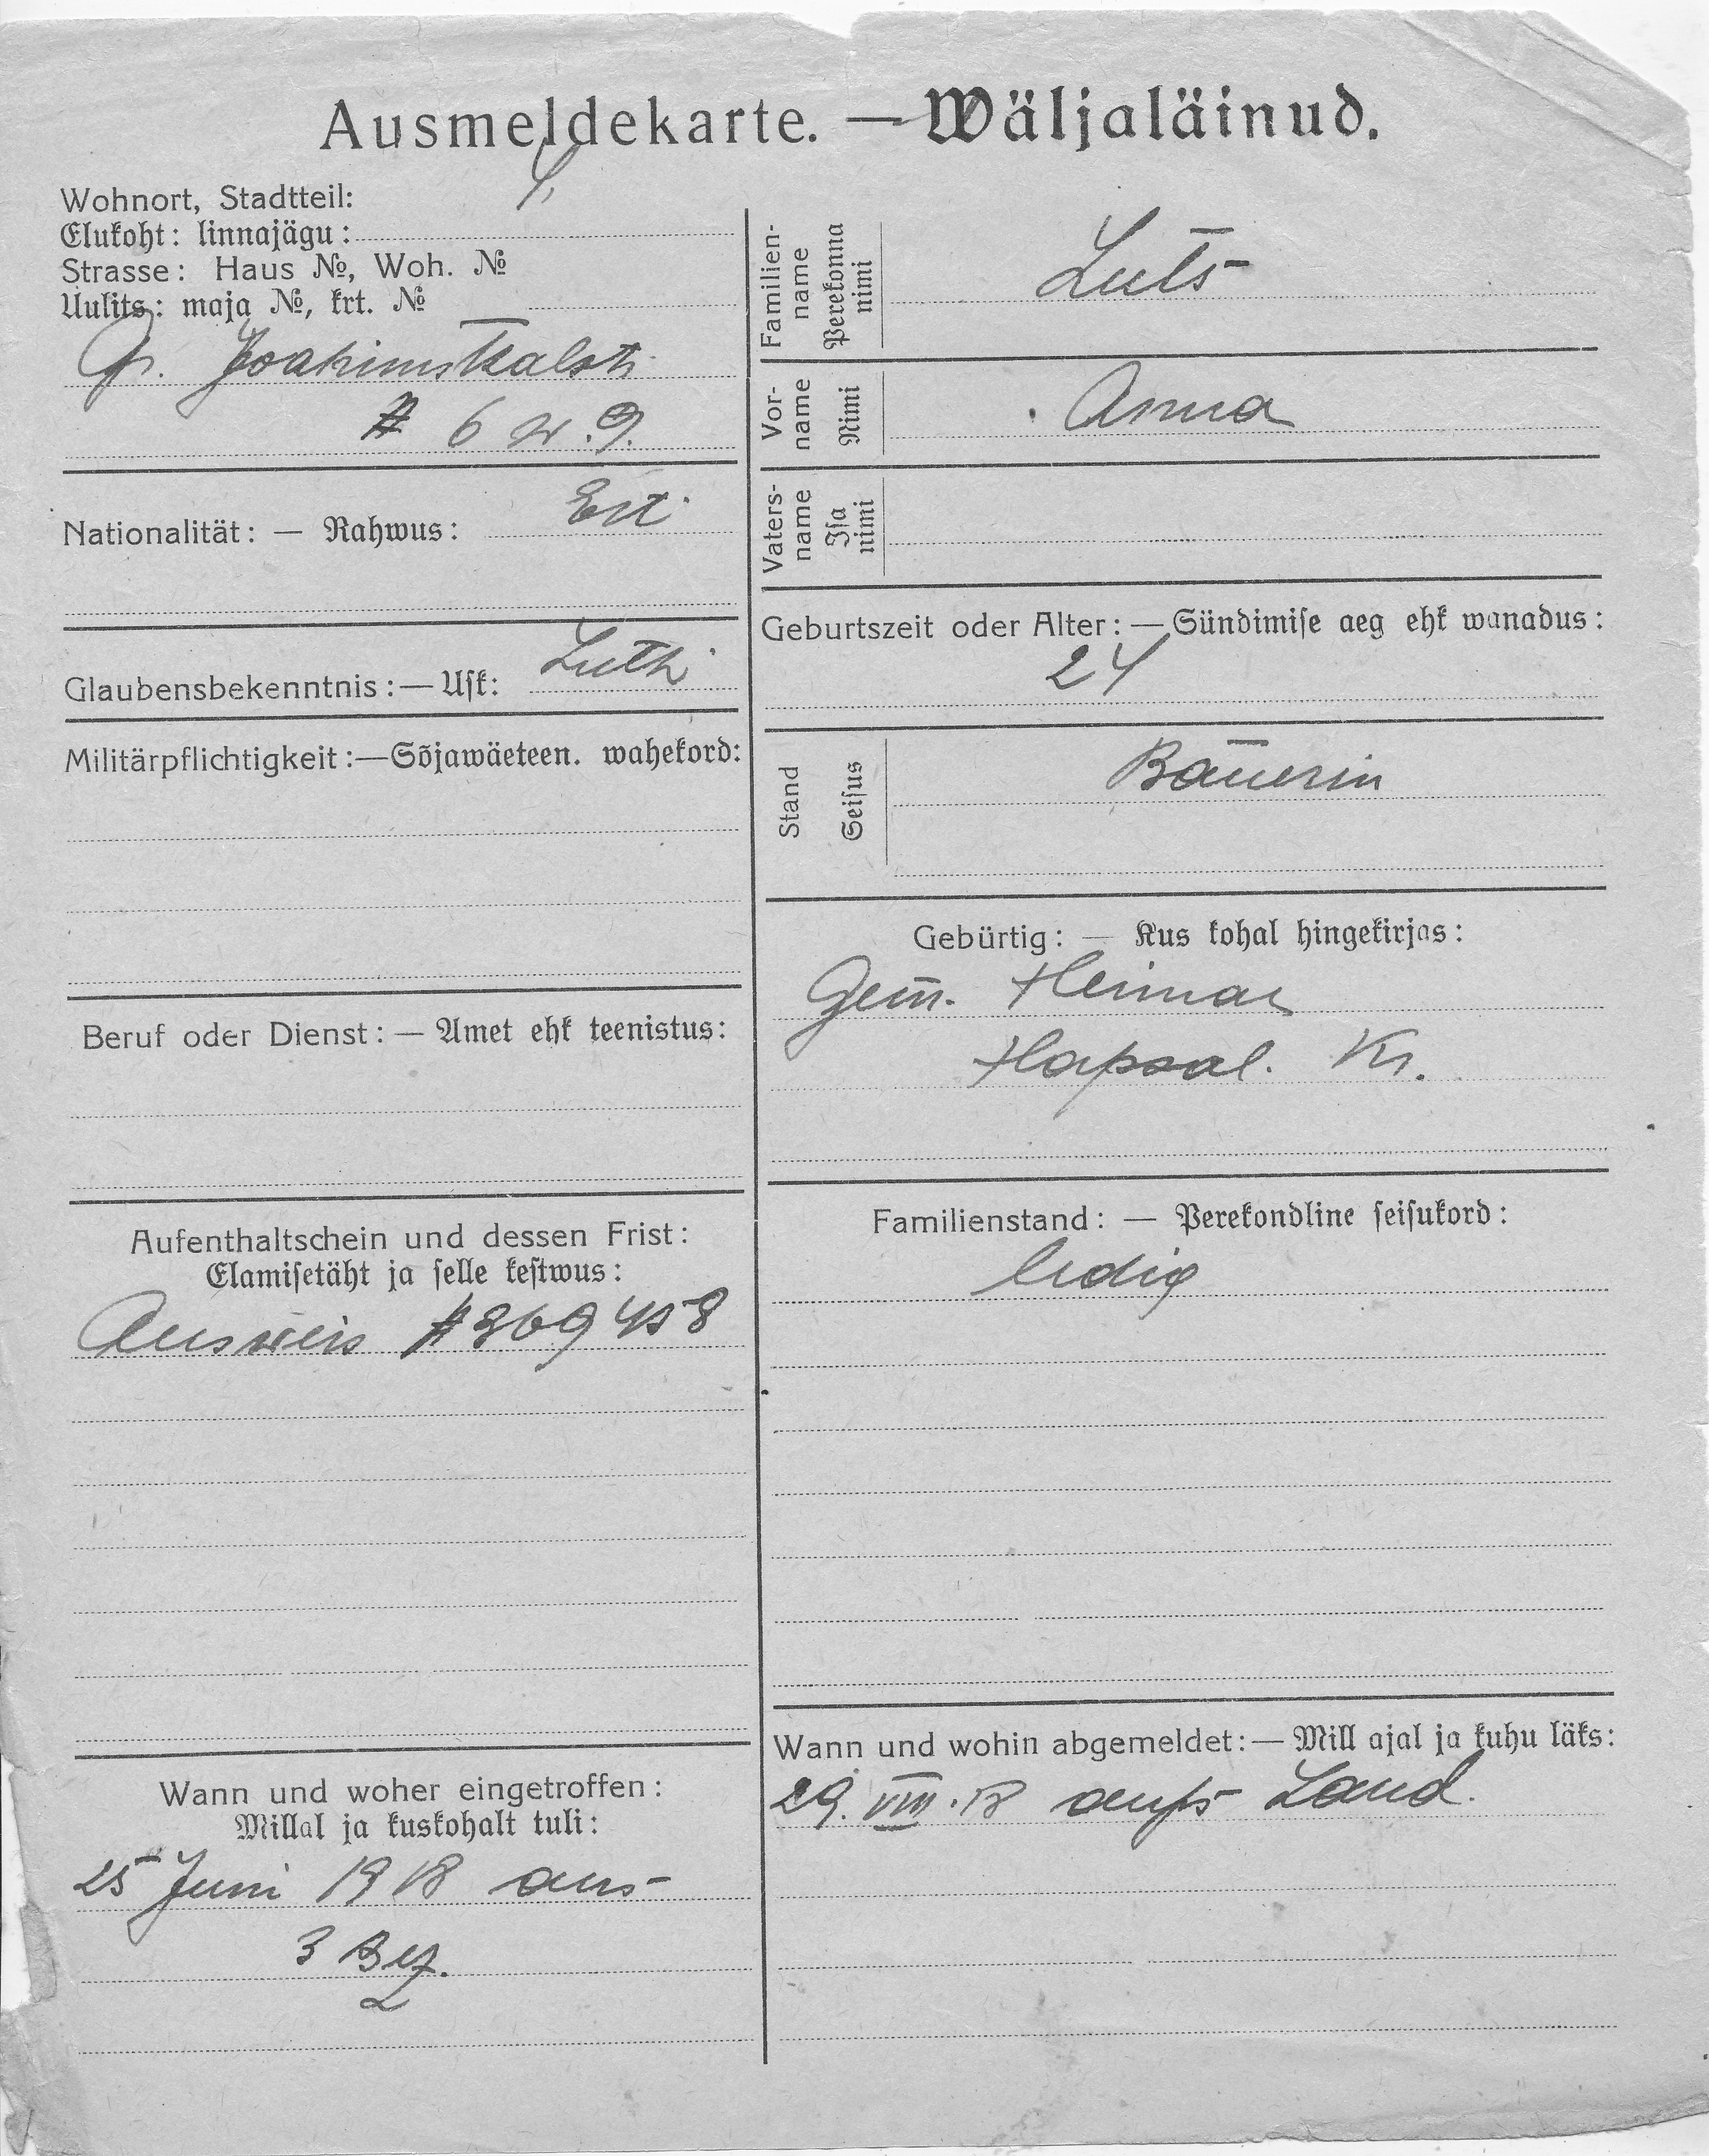 Ausmeldekarte. — Wäljaläinud.
Wohnort, Stadtteil:
Elukoht: linnajägu:
Strasse: Haus №, Woh. №
Uulits: maja №, krt. №
Gr. Joachimstkalstr.
# 6 w. 9.
Nationalität: — Rahwus: Est.
Glaubensbekenntnis: — Usk: Luth.
Militärpflichtigkeit: — Sõjawäeteen. wahekord:
Beruf oder Dienst: — Amet ehk teenistus:
Aufenthaltschein und dessen Frist:
Elamisetäht ja selle kestwus:
Ausweis # 369458
Wann und woher eingetroffen:
Millal ja kuskohalt tuli:
25 Juni 1918 aus
3 Bez.
Familien-
name
Perekonna
nimi
Luts
Vor-
name
Nimi
Anna
Vaters-
name
Isa
nimi
Geburtszeit oder Alter: — Sündimise aeg ehk wanadus:
24
Stand
Seisus
Bäuerin
Gebürtig: — Kus kohal hingekirjas:
Gem. Heimar
Hapsal. Kr.
Familienstand: — Perekondline seisukord:
ledig
Wann und wohin abgemeldet: — Mill ajal ja kuhu läks:
29. VIII. 18 aufs Land.